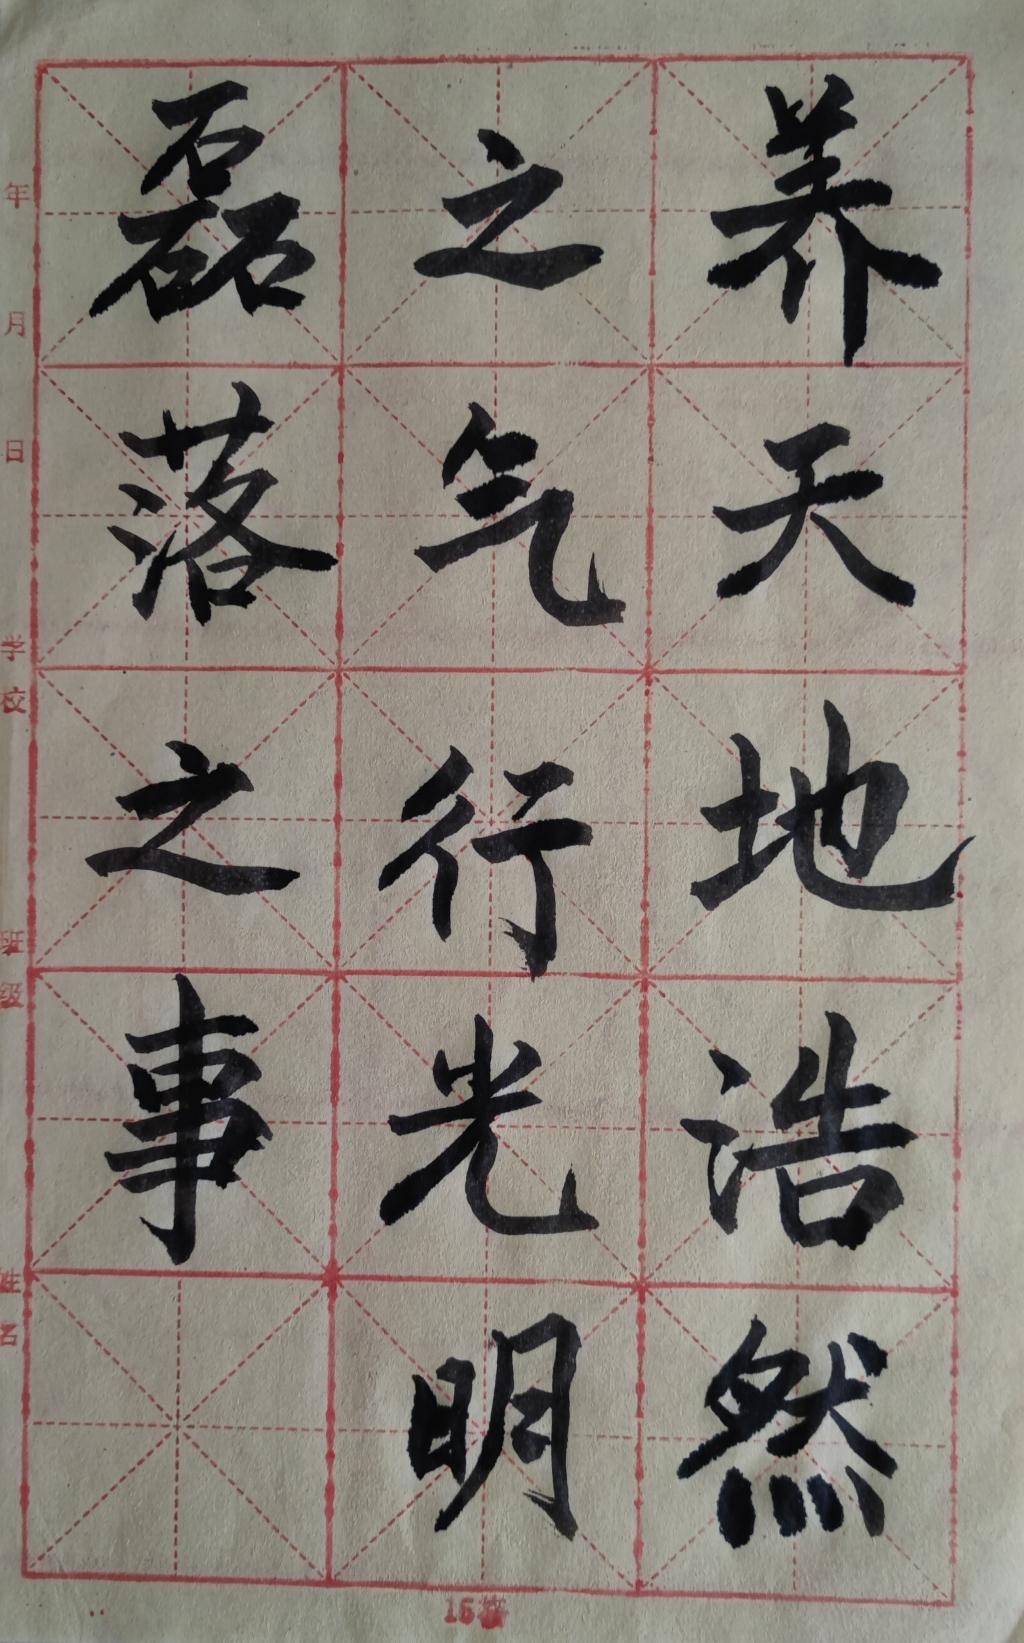 养天地浩然
之气行光明
磊落之事
年月日
学校
班级
姓名
15格